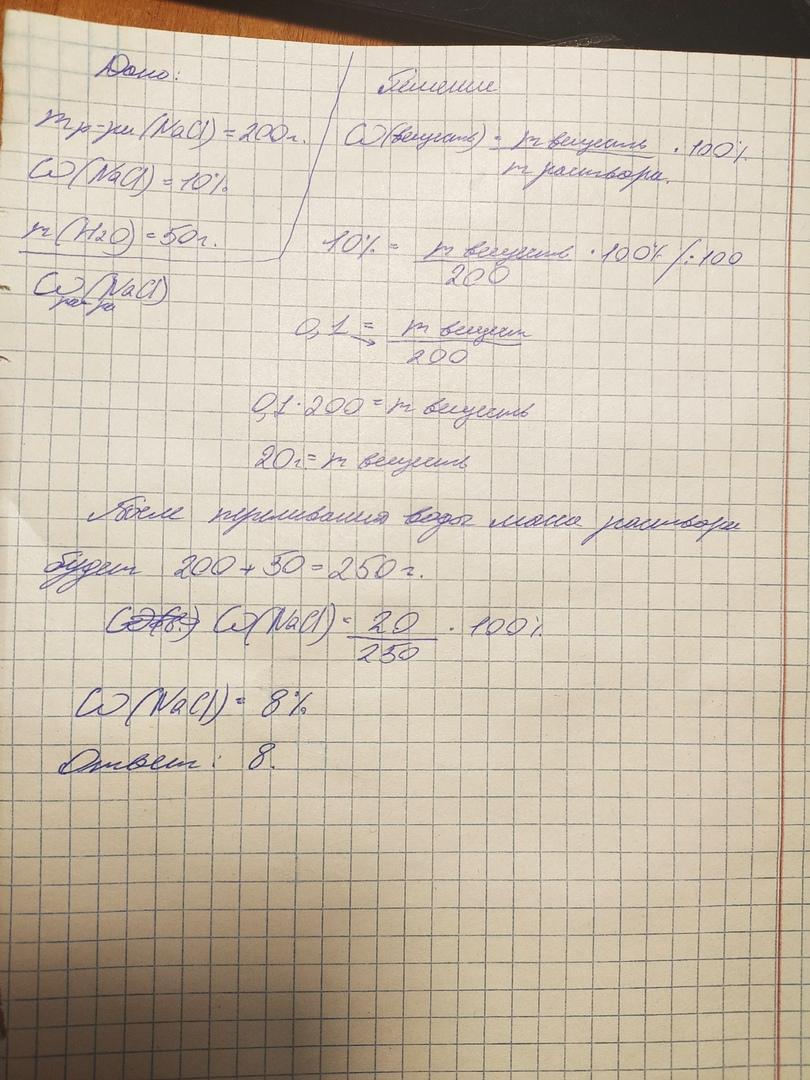 Дано:
Решение
m р-ра (NaCl) = 200г.
ω(NaCl) = 10%
m(H2O) = 50г.
ω(NaCl)
р-ра
ω(веществ) = m веществ / m раствора. · 100%
10% = m веществ / 200 · 100% /:100
0,1 = m вещест / 200
0,1 · 200 = m веществ
20г = m веществ
После переливания воды масса раствора
будет 200 + 50 = 250 г.
ω(NaCl) = 20 / 250 · 100%
ω(NaCl) = 8%
Ответ: 8.